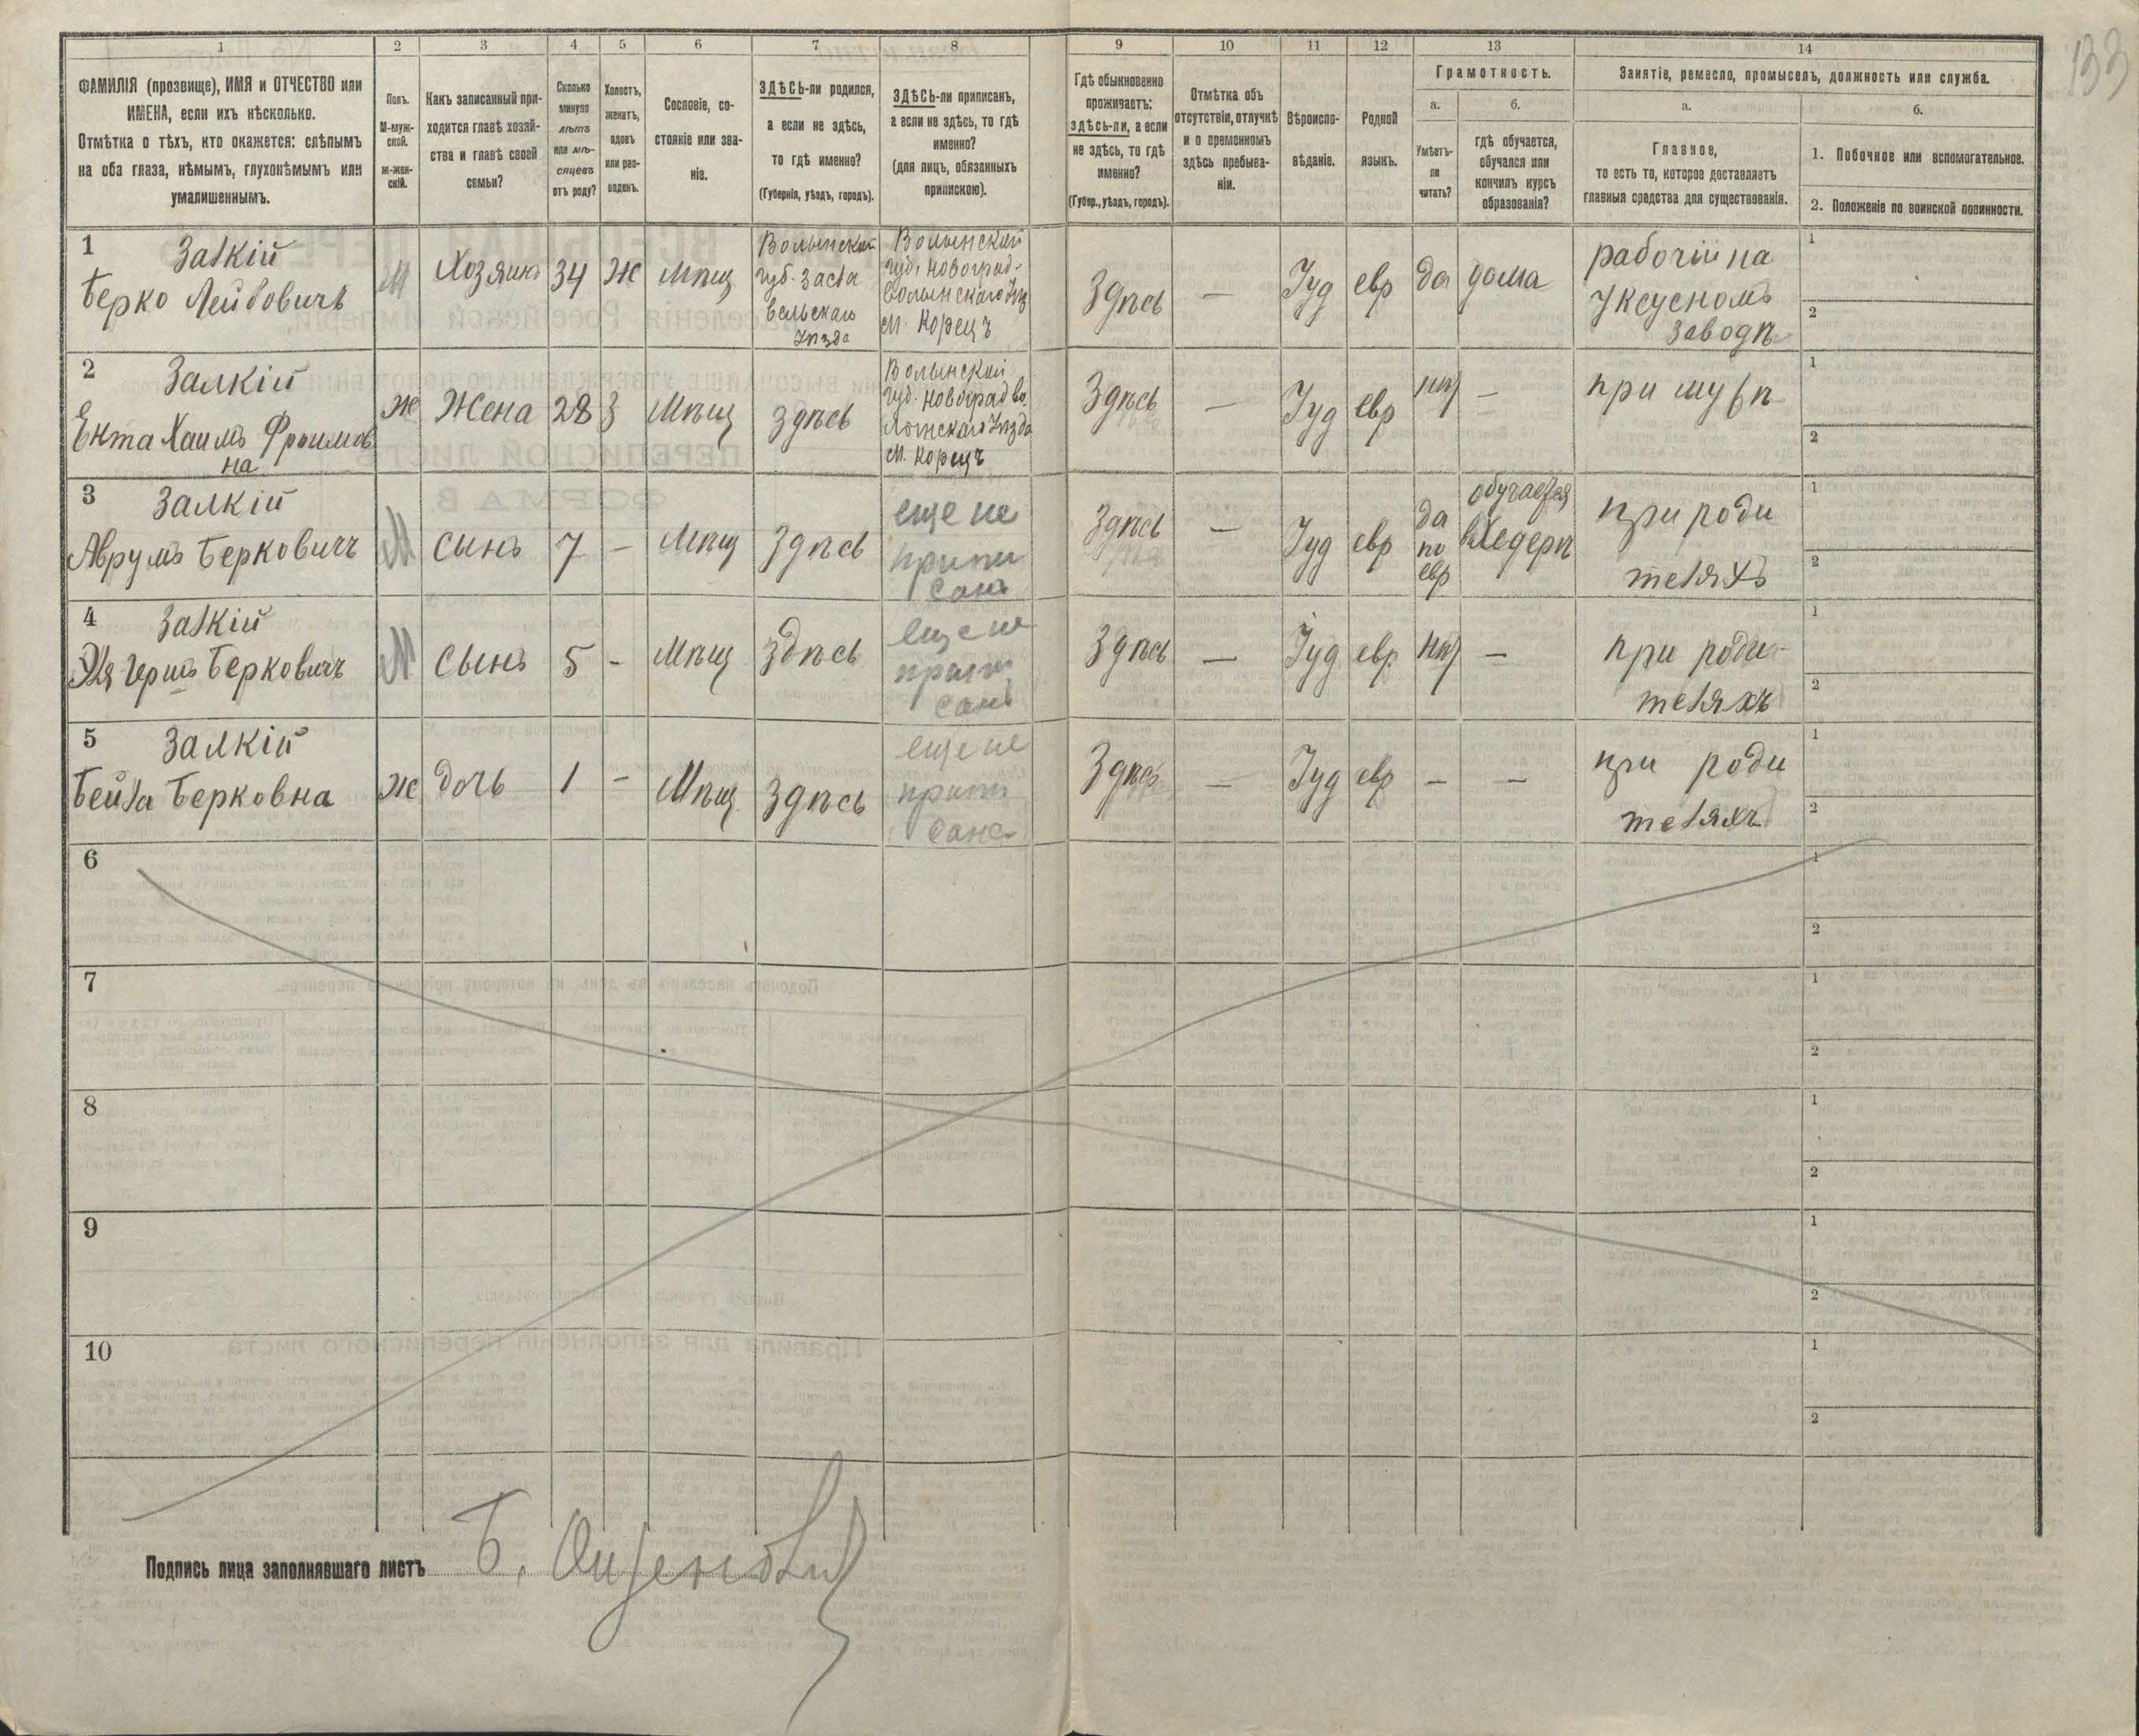 133
1
2
3
4
5
6
7
8
9
10
11
12
13
14
ФАМИЛІЯ (прозвище), ИМЯ и ОТЧЕСТВО или
ИМЕНА, если ихъ нѣсколько.
Отмѣтка о тѣхъ, кто окажется: слѣпымъ
на оба глаза, нѣмымъ, глухонѣмымъ или
умалишеннымъ.
Полъ.
М-муж-
ской.
Ж-жен-
скій.
Какъ записанный при-
ходится главѣ хозяй-
ства и главѣ своей
семьи?
Сколько
минуло
лѣтъ
или мѣ-
сяцевъ
отъ роду?
Холостъ,
женатъ,
вдовъ
или раз-
веденъ.
Сословіе, со-
стояніе или зва-
ніе.
ЗДѢСЬ-ли родился,
а если не здѣсь,
то гдѣ именно?
(Губернія, уѣздъ, городъ).
ЗДѢСЬ-ли приписанъ,
а если не здѣсь, то гдѣ
именно?
(для лицъ, обязанныхъ
припискою).
Гдѣ обыкновенно
проживаетъ:
здѣсь-ли, а если
не здѣсь, то гдѣ
именно?
(Губер., уѣздъ, городъ).
Отмѣтка объ
отсутствіи, отлучкѣ
и о временномъ
здѣсь пребыва-
ніи.
Вѣроиспо-
вѣданіе.
Родной
языкъ.
Грамотность.
а.
Умѣетъ-
ли
читать?
б.
гдѣ обучается,
обучался или
кончилъ курсъ
образованія?
Занятіе, ремесло, промыселъ, должность или служба.
а.
Главное,
то есть то, которое доставляетъ
главныя средства для существованія.
б.
1. Побочное или вспомогательное.
2. Положеніе по воинской повинности.
1
Залкій
Берко Лейбовичъ
М
Хозяинъ
34
Ж
Мѣщ
Волынской
губ. Засла
вельскаго
Уѣзда
Волынской
губ. Новоград-
Волынскаго Уѣз
м. Корецъ
Здѣсь
—
Іуд
евр
да
дома
рабочій на
Уксусномъ
заводѣ
1
2
2
Залкій
Ента Хаимъ Фроимов
на
ж
Жена
28
З
Мѣщ
здѣсь
Волынской
губ. Новоград во
лынскаго Уѣзда
м. Корецъ
Здѣсь
—
Іуд
евр
нѣт
—
при мужѣ
1
2
3
Залкій
Аврумъ Берковичъ
М
сынъ
7
—
Мѣщ
Здѣсь
еще не
припи
санъ
Здѣсь
—
Іуд
евр
да
по
евр
обучается
въ Хедерѣ
при роди
теляхъ
1
2
4
Залкій
Эля Гершъ Берковичъ
М
Сынъ
5
-
Мѣщ
здѣсь
еще не
припи
санъ
Здѣсь
—
Іуд
евр
нѣт
—
при роди-
теляхъ
1
2
5
Залкій
Бейла Берковна
ж
дочь
1
-
Мѣщ
здѣсь
еще не
припи
сана
Здѣсь
—
Іуд
евр
—
—
при роди
теляхъ
1
2
6
1
2
7
1
2
8
1
2
9
1
2
10
1
2
Подпись лица заполнявшаго листъ